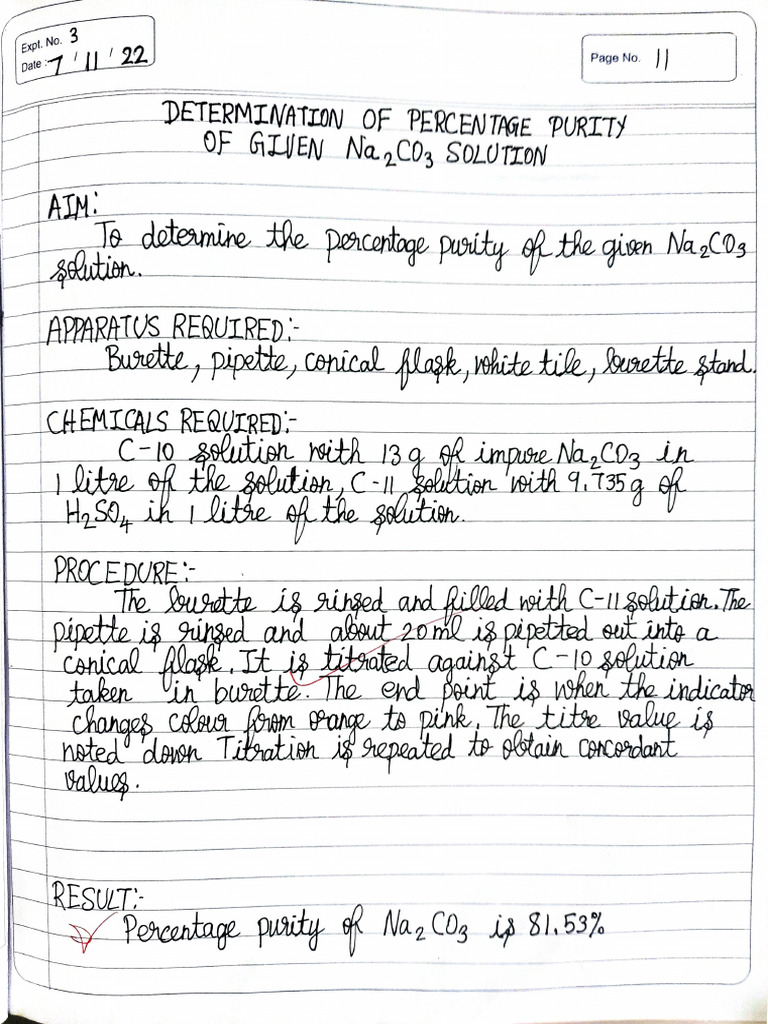 Expt. No. 3
Date : 7 / 11 / 22
Page No. 11
DETERMINATION OF PERCENTAGE PURITY
OF GIVEN Na₂CO₃ SOLUTION
AIM:
To determine the percentage purity of the given Na₂CO₃
solution.
APPARATUS REQUIRED:-
Burette, pipette, conical flask, white tile, burette stand.
CHEMICALS REQUIRED:-
C-10 solution with 13 g of impure Na₂CO₃ in
1 litre of the solution, C-11 solution with 9.735 g of
H₂SO₄ in 1 litre of the solution.
PROCEDURE:-
The burette is rinsed and filled with C-11 solution. The
pipette is rinsed and about 20 ml is pipetted out into a
conical flask. It is titrated against C-10 solution
taken in burette. The end point is when the indicator
changes colour from orange to pink. The titre value is
noted down Titration is repeated to obtain concordant
values.
RESULT:-
Percentage purity of Na₂CO₃ is 81.53%